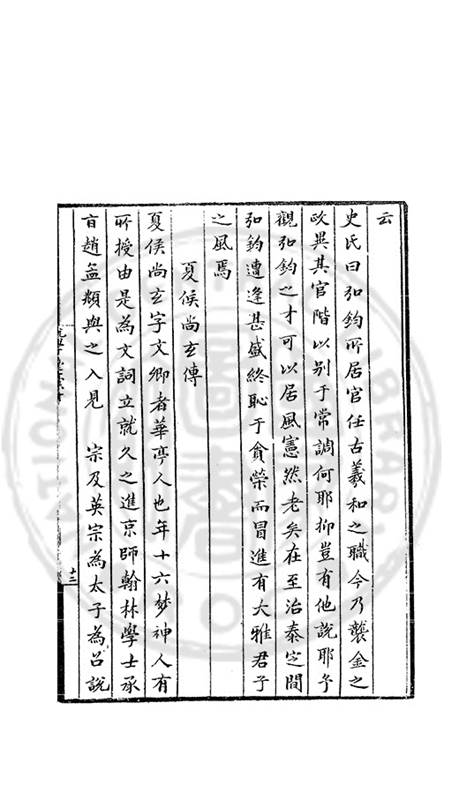 云
史氏曰弘鈞所居官任古羲和之職今乃襲金之
政異其官階以別于常調何耶抑豈有他說耶予
觀弘鈞之才可以居風憲然老矣在至治泰定間
弘鈞遭逢甚盛終恥于貪榮而冒進有大雅君子
之風焉
夏侯尚玄傳
夏侯尚玄字文卿者華亭人也年十六夢神人有
所授由是為文詞立就久之進京師翰林學士承
旨趙孟頫與之入見 宗及英宗為太子為召說
十三